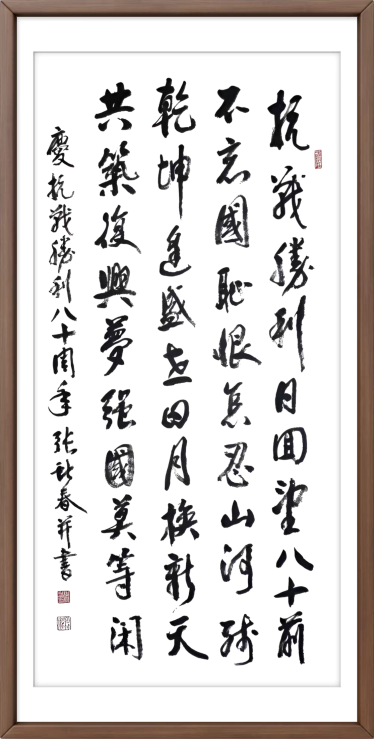 抗戰勝利日回望八十前
不忘國恥恨怎忍山河殘
乾坤逢盛世日月換新天
共築復興夢強國莫等闲
慶抗戰勝利八十周年張秋春并書